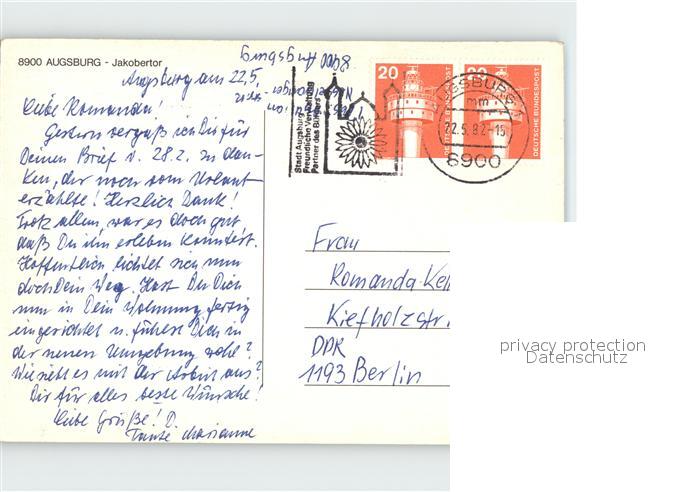 8900 AUGSBURG - Jakobertor
8900 Augsburg
Augsburg am 22.5.
Liebe Romanda!
Gestern vergaß ich Dir für
Deinen Brief v. 28.2. zu dan-
ken, der noch vom Urlaub
erzählte! Herzlich Dank!
Trotz allem, war es doch gut
daß Du ihn erleben konntest.
Hoffentlich lichtet sich nun
doch Dein Weg. Hast Du Dich
nun in Dein Wohnung fertig
eingerichtet u. fühlst Dich in
der neuen Umgebung wohl?
Wie sieht es mit der Arbeit aus?
Dir für alles beste Wünsche!
Liebe Grüße! D.
Tante Marianne
Stadt Augsburg
Freundliche Verwaltung
Partner des Bürgers
20
DEUTSCHE BUNDESPOST
AUGSBURG
mm
22.5.82-15
8900
Frau
Romanda Kel
Kiefholzstr.
DDR
1193 Berlin
privacy protection
Datenschutz